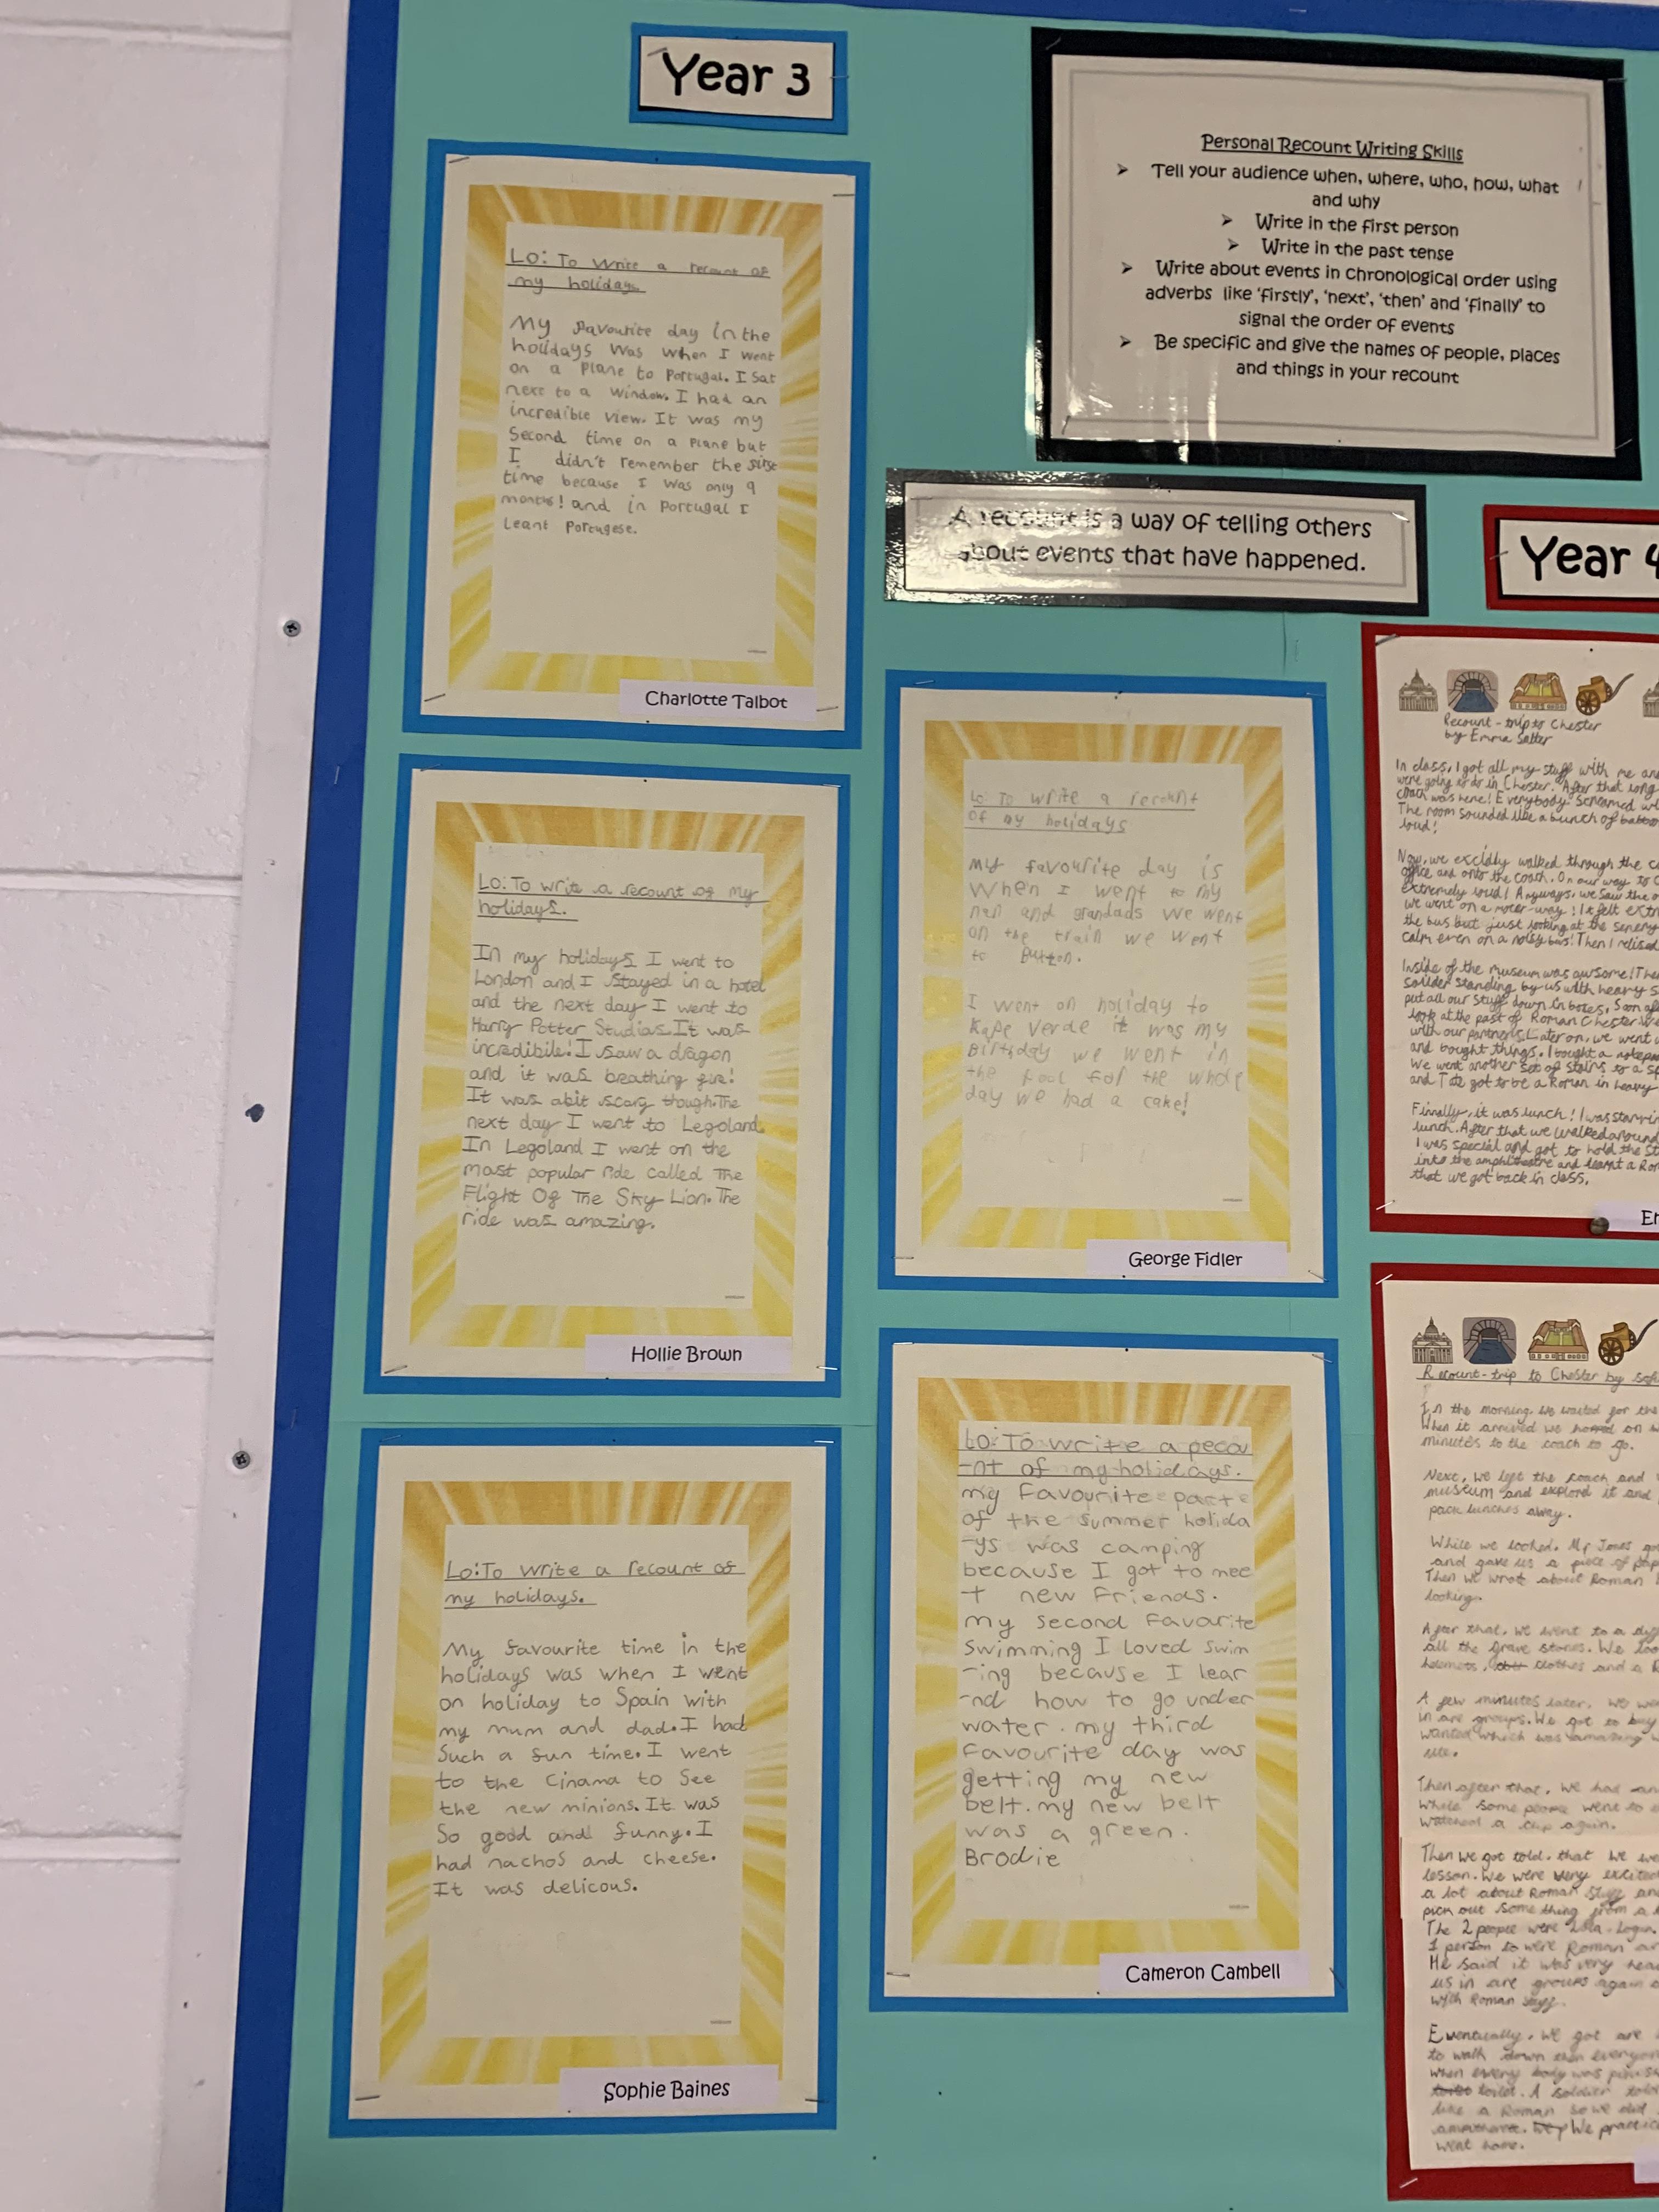 Year 3
LO: To write a recount of
my holidays
My favourite day in the
holidays was when I went
on a plane to Portugal. I sat
next to a window. I had an
incredible view. It was my
Second time on a plane but
I didn't remember the first
time because I was only 9
months! and in Portugal I
leant Portugese.
Charlotte Talbot
LO: To write a recount of my
holidays.
In my holidays I went to
London and I stayed in a hotel
and the next day I went to
Harry Potter Studios. It was
incredibile! I saw a dragon
and it was breathing fire!
It was abit scary though. The
next day I went to Legoland.
In Legoland I went on the
most popular ride called The
Flight Of The Sky Lion. The
ride was amazing.
Hollie Brown
Lo: To write a recount of
my holidays.
My favourite time in the
holidays was when I went
on holiday to Spain with
my mum and dad. I had
Such a fun time. I went
to the Cinama to See
the new minions. It was
So good and funny. I
had nachos and cheese.
It was delicous.
Sophie Baines
Personal Recount Writing Skills
➤ Tell your audience when, where, who, how, what
and why
➤ Write in the first person
➤ Write in the past tense
➤ Write about events in chronological order using
adverbs like 'firstly', 'next', 'then' and 'finally' to
signal the order of events
➤ Be specific and give the names of people, places
and things in your recount
A recount is a way of telling others
about events that have happened.
Lo: To write a recount
Of my holidays
my favourite day is
when I went to my
nan and grandads we went
on the train we went
to
I went on holiday to
Kape Verde it was my
Birthday we went in
the Pool for the whole
day we had a cake!
George Fidler
Lo: To write a recou
-nt of my holidays.
my favourite part
of the summer holida
-ys was camping
because I got to mee
t new Friends.
my second favourite
swimming I loved swim
-ing because I lear
-nd how to go under
water. my third
favourite day was
getting my new
belt. my new belt
was a green.
Brodie
Cameron Cambell
Year 4
Recount - trip to Chester
by Emma Salter
In class, I got all my stuff with me
were going to in Chester. After that long
coach was here! Everybody screamed
The room sounded like a bunch of
loud!
Now, we excidly walked through the
office and onto the coach. On our way to
extremely loud! Anyways, we saw the
we went on a moter-way! It felt
the bus but just looking at the senery
calm even on a noisy bus! Then I relised
Inside of the museum was awsome! The
solider standing by us with heavy
put all our stuff down in boxes, Soon
look at the past of Roman Chester
with our partners. Later on, we went
and bought things. I bought a
We went another set of stairs to a
and got to be a Roman in heavy
Finally, it was lunch! I was
lunch. After that we walked around
I was special and got to hold the
into the and learnt a
that we got back in class.
Recount-trip to Chester by
In the morning, we waited for the
When it arrived we on
minutes to the coach to go.
Next, we left the coach and
museum and explord it and
pack lunches away.
While we looked. Mr Jones
and gave us a piece of
Then we wrote about Roman
looking.
After that, we went to a
all the grave stones. We
clothes and a
A few minutes later, we
in are groups. We got to buy
wanted which was amazing
Then after that, we had
While some people went to
watched a again.
Then we got told, that we
lesson. We were very excited
a lot about Roman and
pick out some thing from a
The 2 people were
1 person to were Roman
He said it was very
us in are groups again
with Roman
Eventually, we got are
to walk down then everyone
when every body was
toilet. A soldier
like a Roman so we did
We
went home.